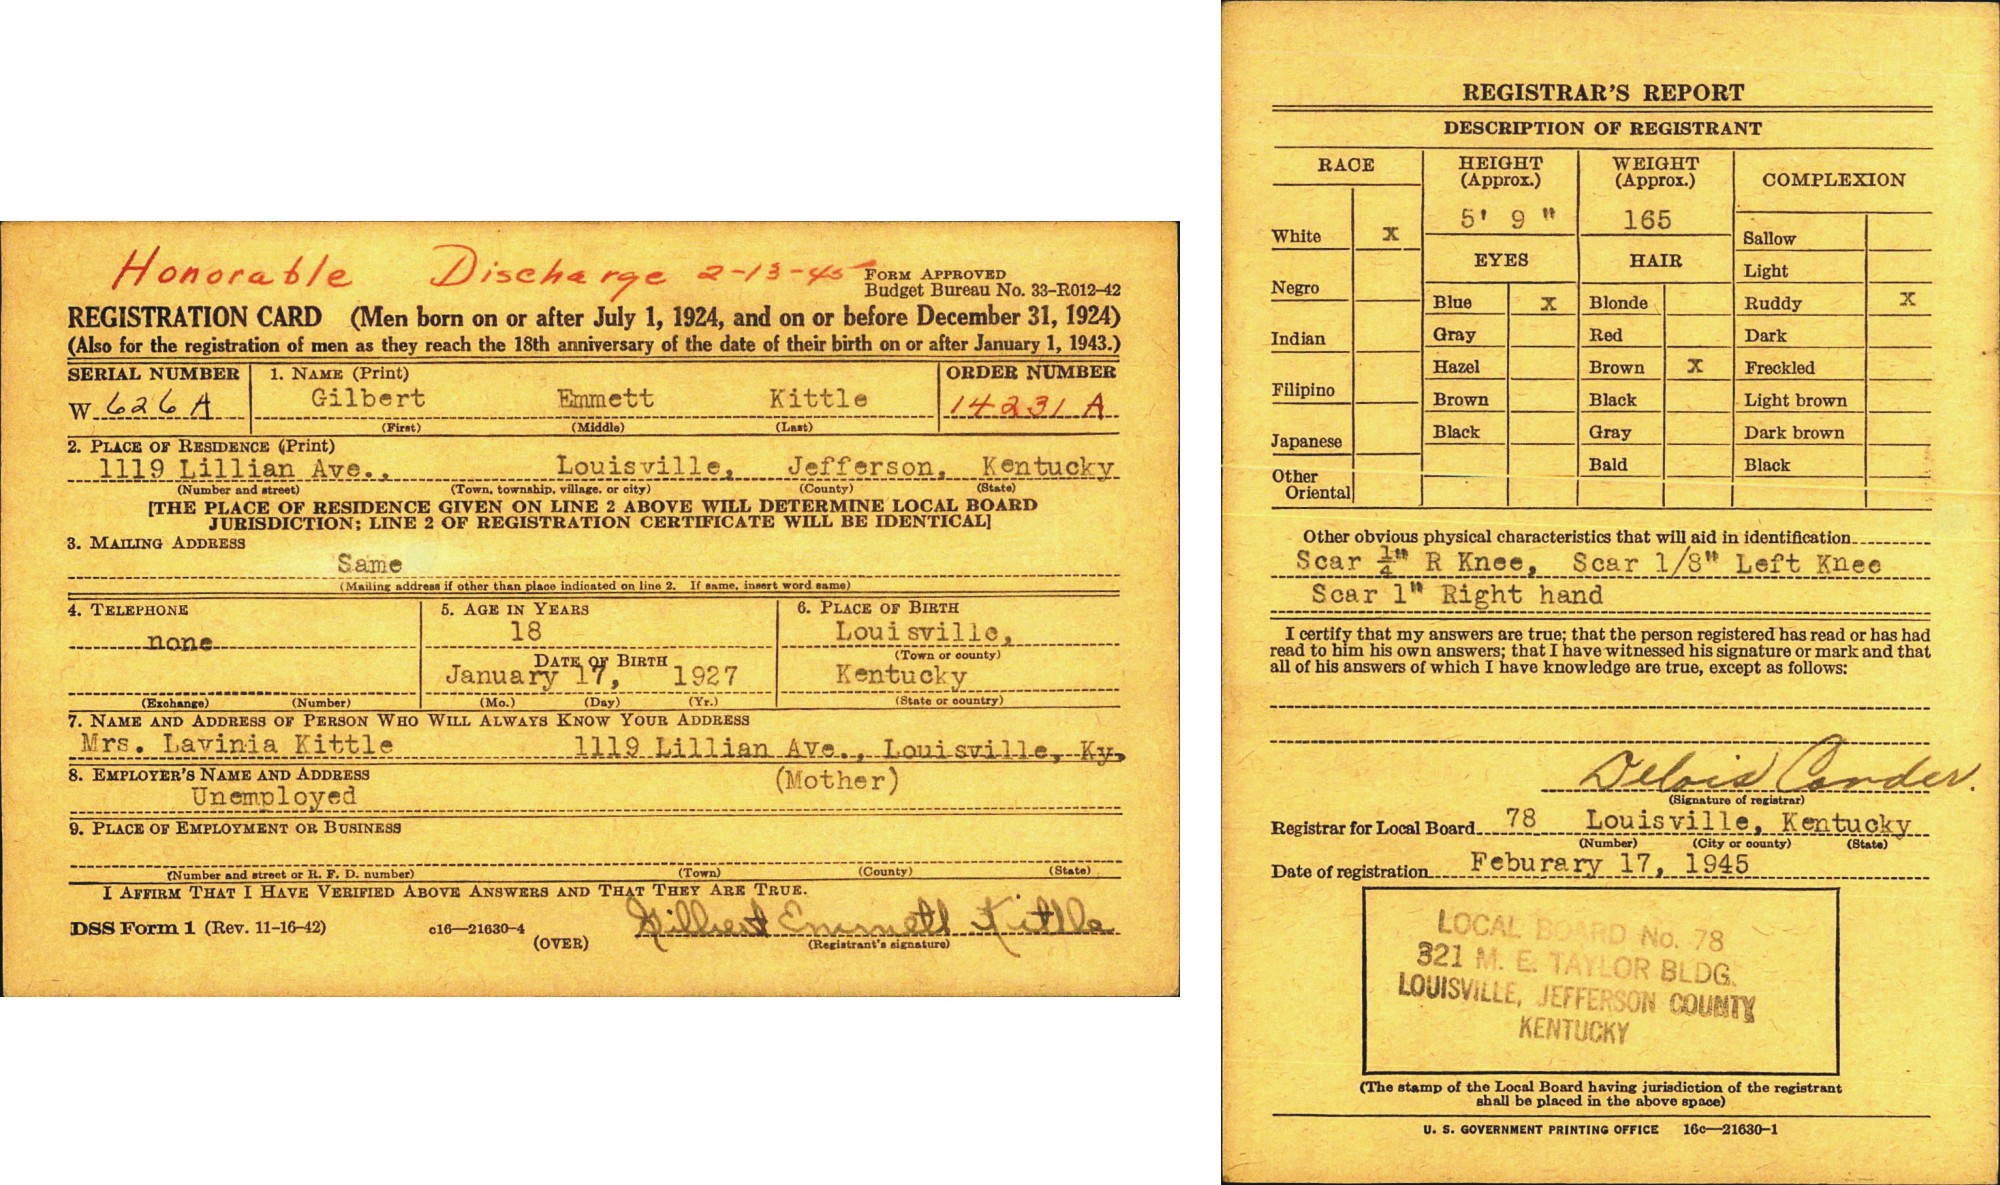 Honorable Discharge 2-13-45
FORM APPROVED
Budget Bureau No. 33-R012-42
REGISTRATION CARD (Men born on or after July 1, 1924, and on or before December 31, 1924)
(Also for the registration of men as they reach the 18th anniversary of the date of their birth on or after January 1, 1943.)
SERIAL NUMBER 1. NAME (Print) ORDER NUMBER
W 626 A Gilbert Emmett Kittle 14231 A
(First) (Middle) (Last)
2. PLACE OF RESIDENCE (Print)
1119 Lillian Ave., Louisville, Jefferson, Kentucky
(Number and street) (Town, township, village, or city) (County) (State)
[THE PLACE OF RESIDENCE GIVEN ON LINE 2 ABOVE WILL DETERMINE LOCAL BOARD
JURISDICTION; LINE 2 OF REGISTRATION CERTIFICATE WILL BE IDENTICAL]
3. MAILING ADDRESS
Same
(Mailing address if other than place indicated on line 2. If same, insert word same)
4. TELEPHONE 5. AGE IN YEARS 6. PLACE OF BIRTH
none 18 Louisville,
DATE OF BIRTH (Town or county)
January 17, 1927 Kentucky
(Exchange) (Number) (Mo.) (Day) (Yr.) (State or country)
7. NAME AND ADDRESS OF PERSON WHO WILL ALWAYS KNOW YOUR ADDRESS
Mrs. Lavinia Kittle 1119 Lillian Ave., Louisville, Ky,
8. EMPLOYER'S NAME AND ADDRESS (Mother)
Unemployed
9. PLACE OF EMPLOYMENT OR BUSINESS
(Number and street or R. F. D. number) (Town) (County) (State)
I AFFIRM THAT I HAVE VERIFIED ABOVE ANSWERS AND THAT THEY ARE TRUE.
DSS Form 1 (Rev. 11-16-42) c16—21630-4 (OVER) Gilbert Emmett Kittle
(Registrant's signature)
REGISTRAR'S REPORT
DESCRIPTION OF REGISTRANT
RACE HEIGHT (Approx.) WEIGHT (Approx.) COMPLEXION
5' 9 " 165
White X Sallow
EYES HAIR
Light
Negro
Blue X Blonde Ruddy X
Indian Gray Red Dark
Hazel Brown X Freckled
Filipino Brown Black Light brown
Japanese Black Gray Dark brown
Bald Black
Other
Oriental
Other obvious physical characteristics that will aid in identification
Scar 1/4" R Knee, Scar 1/8" Left Knee
Scar 1" Right hand
I certify that my answers are true; that the person registered has read or has had
read to him his own answers; that I have witnessed his signature or mark and that
all of his answers of which I have knowledge are true, except as follows:
Delois Conder.
(Signature of registrar)
Registrar for Local Board 78 Louisville, Kentucky
(Number) (City or county) (State)
Date of registration Feburary 17, 1945
LOCAL BOARD No. 78
321 M. E. TAYLOR BLDG.
LOUISVILLE, JEFFERSON COUNTY
KENTUCKY
(The stamp of the Local Board having jurisdiction of the registrant
shall be placed in the above space)
U. S. GOVERNMENT PRINTING OFFICE 16c—21630-1